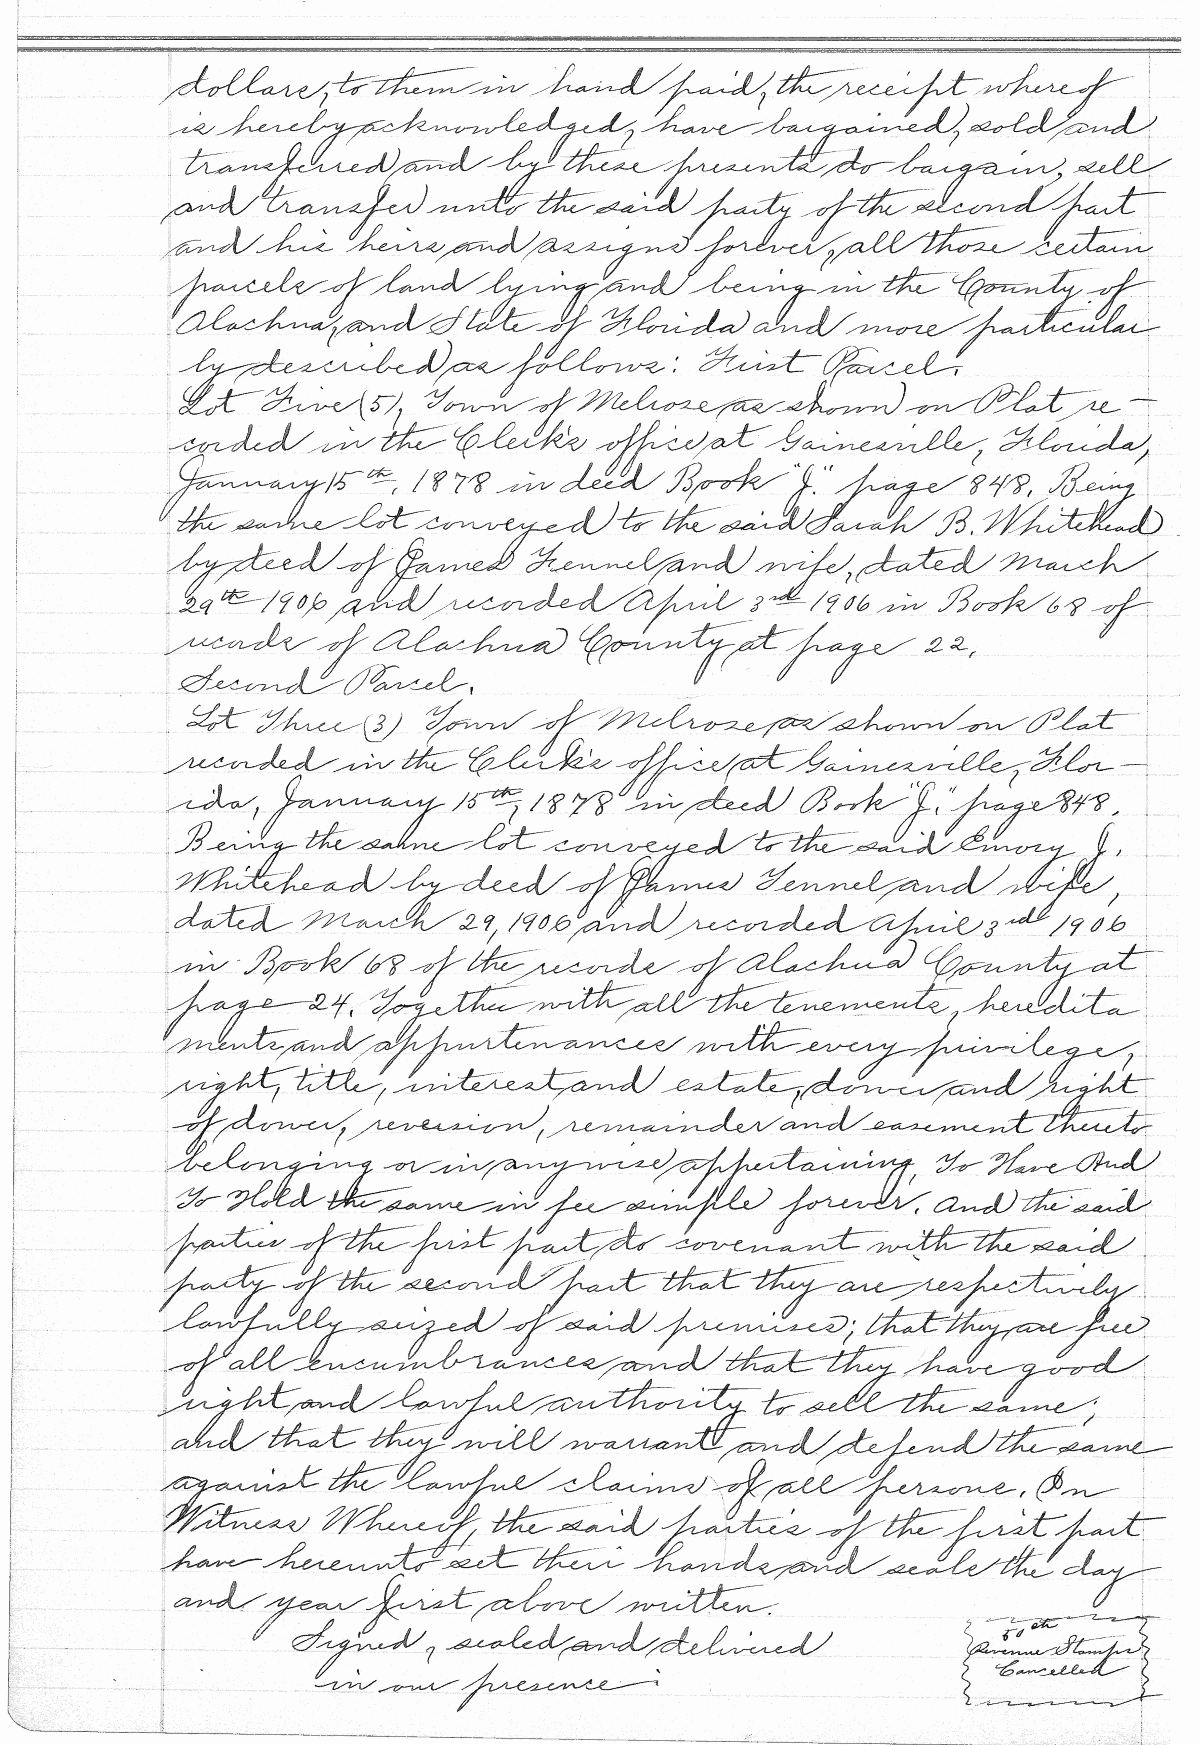 dollars, to them in hand paid, the receipt whereof
is hereby acknowledged, have bargained, sold and
transferred and by these presents do bargain, sell
and transfer unto the said party of the second part
and his heirs and assigns forever, all those certain
parcels of land lying and being in the County of
Alachua, and State of Florida and more particular
ly described as follows: First Parcel.
Lot Five (5), Town of Melrose as shown on Plat re-
corded in the Clerk's office at Gainesville, Florida,
January 15th, 1878 in deed Book "J." page 848. Being
the same lot conveyed to the said Sarah B. Whitehead
by deed of James Fennel and wife, dated March
29th 1906 and recorded April 3rd 1906 in Book 68 of
records of Alachua County at page 22.
Second Parcel.
Lot Three (3) Town of Melrose as shown on Plat
recorded in the Clerk's office at Gainesville, Flor-
ida, January 15th, 1878 in deed Book "J." page 848.
Being the same lot conveyed to the said Emory J.
Whitehead by deed of James Fennel and wife,
dated March 29, 1906 and recorded April 3rd 1906
in Book 68 of the records of Alachua County at
page 24. Together with all the tenements, heredita
ments and appurtenances with every privilege,
right, title, interest and estate, dower and right
of dower, reversion, remainder and easement thereto
belonging or in anywise appertaining, To Have And
To Hold the same in fee simple forever. And the said
parties of the first part do covenant with the said
party of the second part that they are respectively
lawfully seized of said premises; that they are free
of all encumbrances and that they have good
right and lawful authority to sell the same;
and that they will warrant and defend the same
against the lawful claims of all persons. In
Witness Whereof, the said parties of the first part
have hereunto set their hands and seals the day
and year first above written.
Signed, sealed and delivered
in our presence:
Revenue Stamps
Cancelled